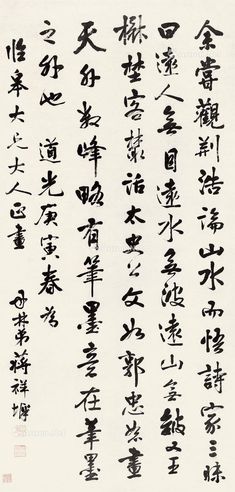 余嘗觀荆浩論山水而悟詩家三昧
曰遠人無目遠水無波遠山無皴又王
楙野客叢話太史公文如郭忠恕畫
天外數峰略有筆墨意在筆墨
之外也 道光庚寅春為
臨皋大兄大人正畫
丹林弟蔣祥墀